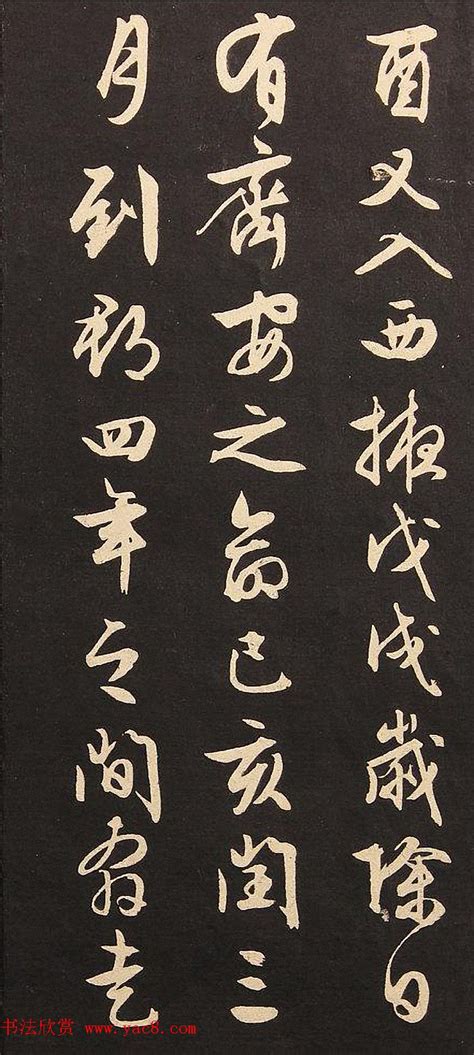 酉又入西掖戊戌歲除日
有齊安之命已亥閏三
月到郡四年之間奔走
书法欣赏 www.yac8.com